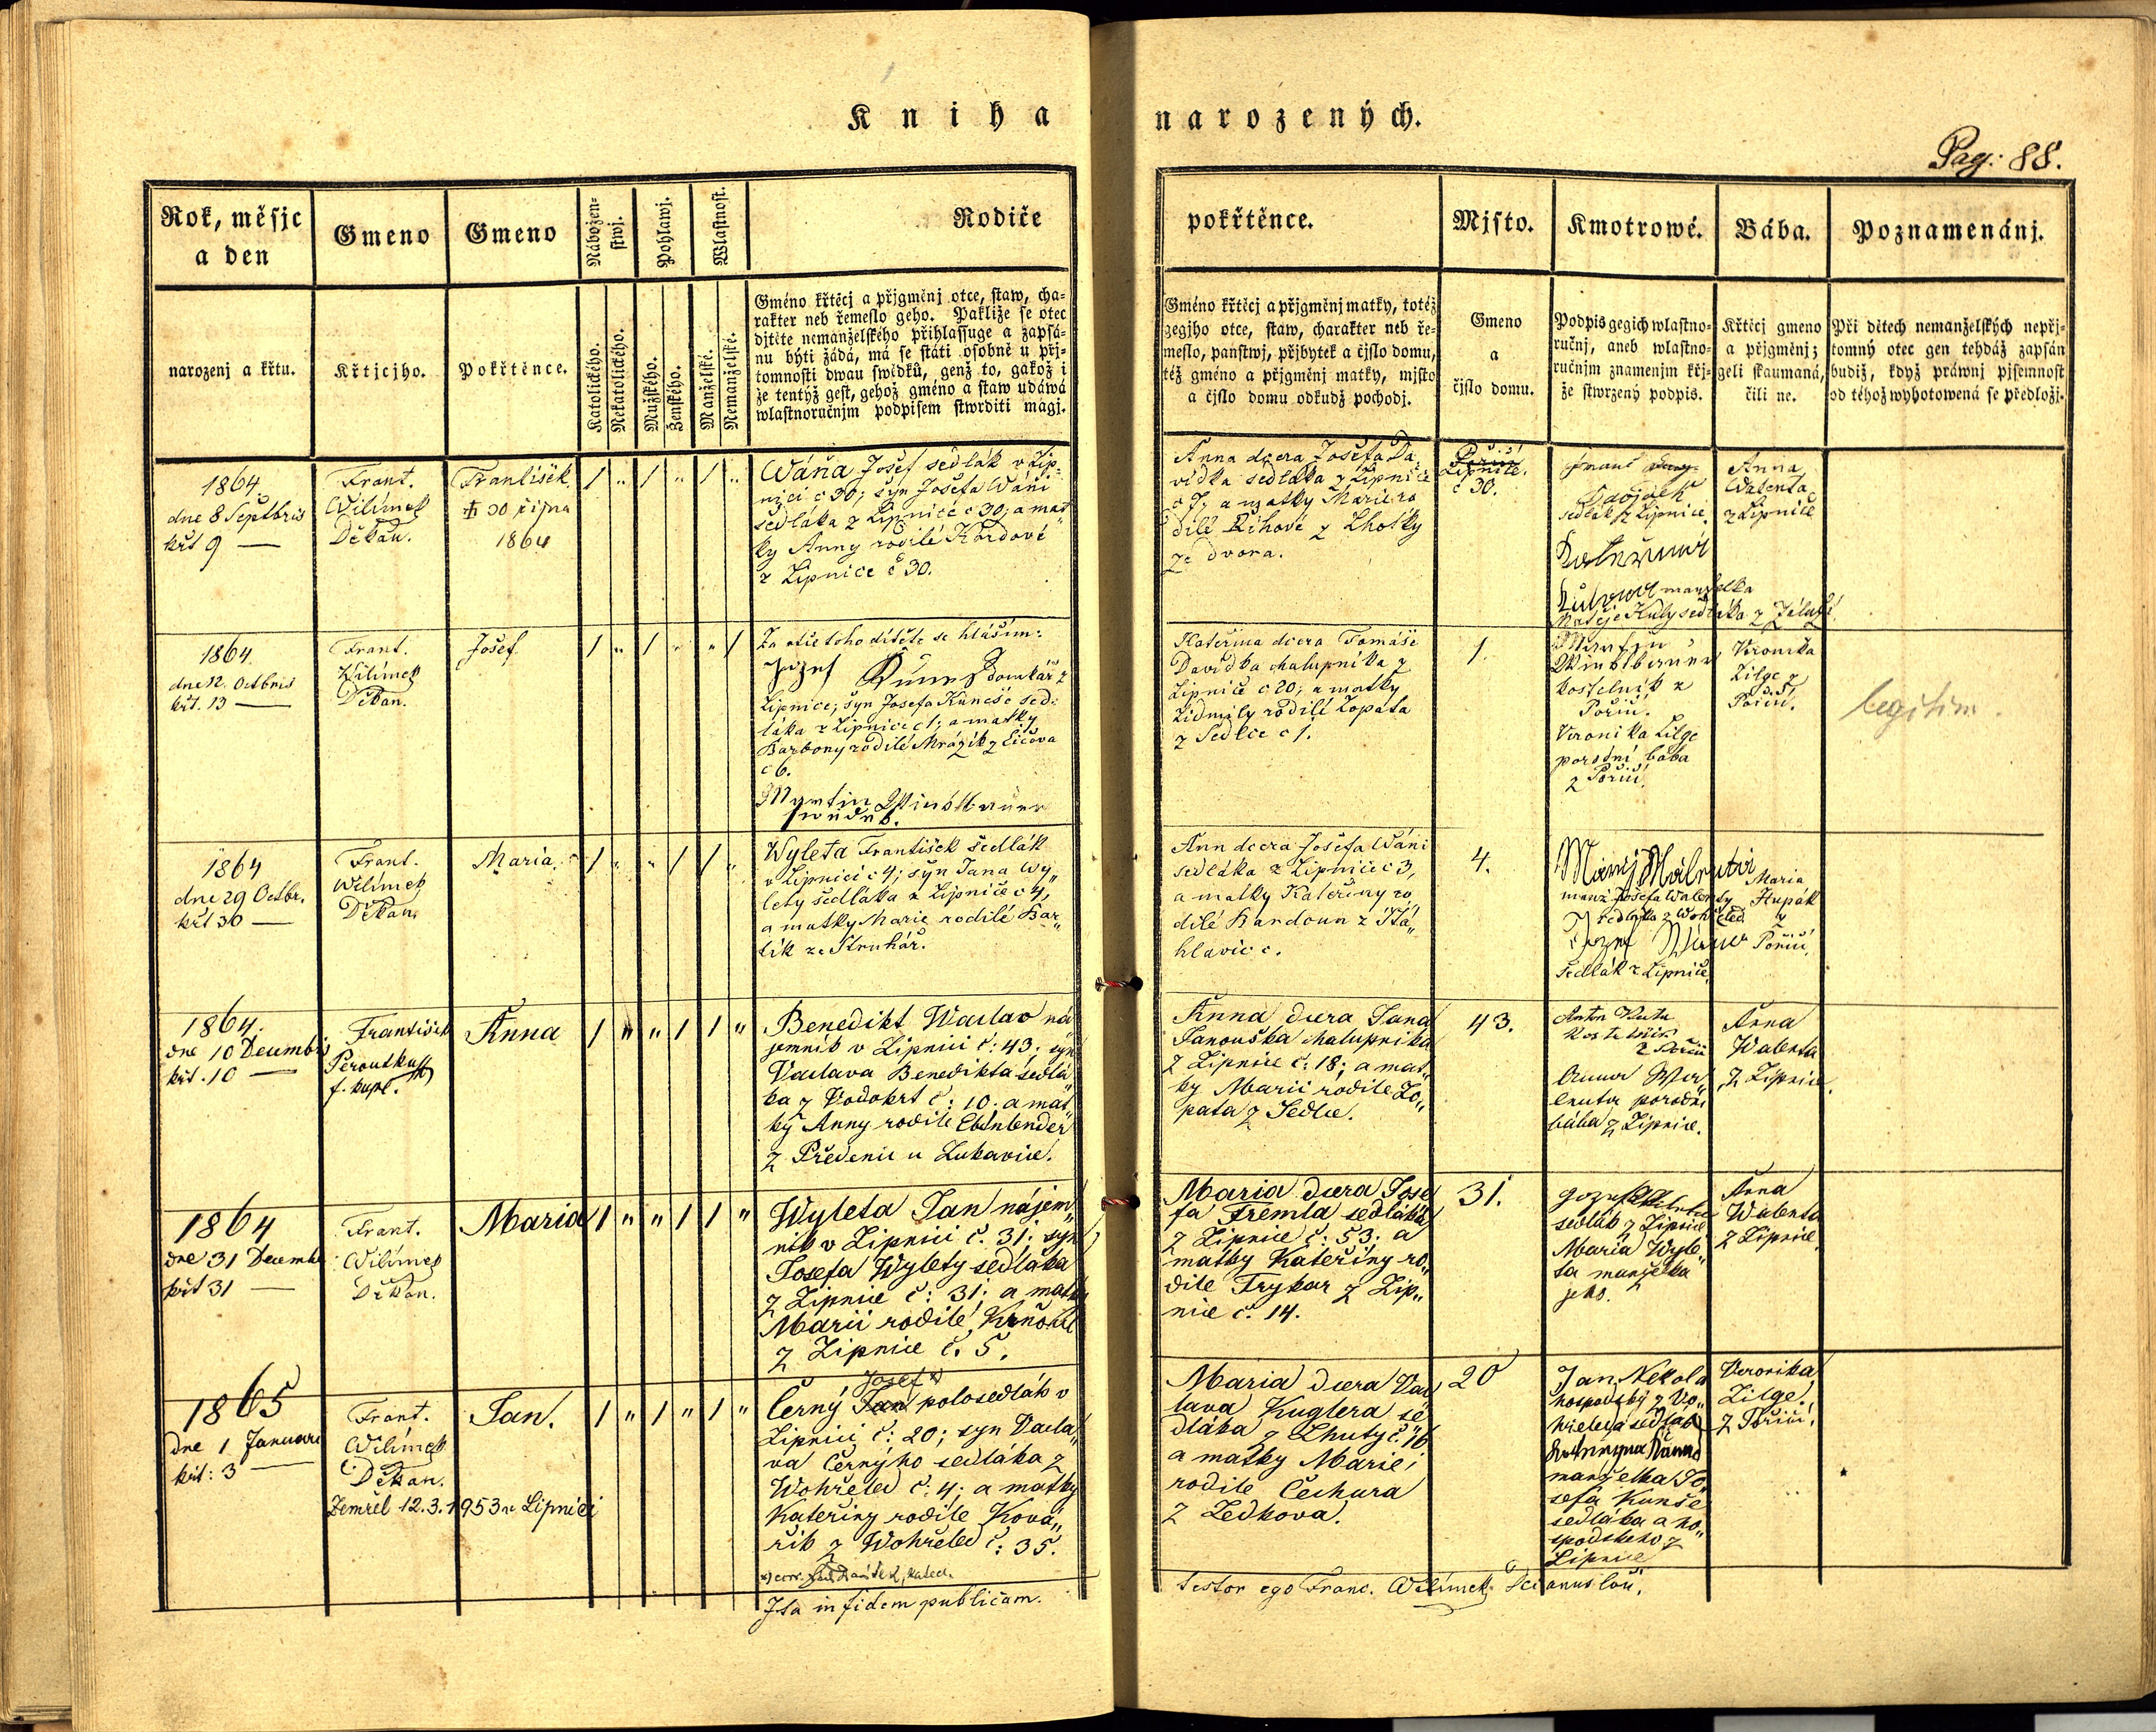 Kniha narozených.
Pag: 88.
Rok, měsjc
a den
narozenj a křtu.
Gmeno
Křtjcjho.
Gmeno
Pokřtěnce.
Nábožen-
stwj.
Katolického.
Nekatolického.
Pohlawj.
Mužského.
Ženského.
Wlastnost.
Manželské.
Nemanželské.
Rodiče
Gméno křtěcj a přjgměnj otce, staw, cha-
rakter neb řemeslo geho. Pakliže se otec
djtěte nemanželského přihlassuge a zapsá-
nu býti žádá, má se státi osobně u přj-
tomnosti dwau swědků, genž to, gakož i
že tentýž gest, gehož gméno a staw udáwá
wlastnoručnjm podpisem stwrditi magj.
pokřtěnce.
Gméno křtěcj a přjgměnj matky, totéž
gegjho otce, staw, charakter neb ře-
meslo, panstwj, přjbytek a čjslo domu,
též gméno a přjgměnj matky, mjsto
a čjslo domu odkudž pochodj.
Mjsto.
Gmeno
a
čjslo domu.
Kmotrowé.
Podpis gegich wlastno-
ručnj, aneb wlastno-
ručnjm znamenjm křj-
že stwrzený podpis.
Bába.
Křtěcj gmeno
a přjgměnj;
geli skaumaná,
čili ne.
Poznamenánj.
Při dětech nemanželských nepřj-
tomný otec gen tehdáž zapsán
budiž, když práwnj pjsemnost
od téhož wyhotowená se předložj.
1864
dne 8 Septbris
křt 9 —
Frant.
Wilímek
Děkan.
František
30 října
1864
/ „ / „ / „
Wáňa Josef sedlák v Lip-
nici c 30; syn Josefa Wáni
sedláka z Lipnice c 30; a mat
ky Anny rodilé Kordové
z Lipnice č 30.
Anna dcera Josefa Da
vídka sedláka z Lipnice
c 7; a matky Marie ro
dilé Říhové z Lhotky
ze dvora.
Lipnice.
č 30.
sedlák z Lipnice.
manželka
Matěje Kuly sedláka z
Anna
Walenta
z Lipnice
1864
dne 12. Octbris
křt. 13 —
Frant.
Wilímek
Děkan.
Josef
/ „ / „ „ /
Za otce toho dítěte se hlásím:
domkář z
Lipnice; syn Josefa Kuneše sed-
láka z Lipnice c 1; a matky
Barbory rodilé Mrázik z Ličova
c 6.
Martin
Kateřina dcera Tomáše
Davídka chalupníka z
Lipnice c 20; a matky
Lidmily rodilé Lopata
z Sedlce c 1.
1.
Martin
kostelník z
Poříčí.
Veronika Lilge
porodní bába
z Poříčí.
Veronika
Lilge z
Poříčí.
legitim.
1864
dne 29 Octbr.
křt 30 —
Frant.
Wilímek
Děkan.
Maria.
/ „ „ / / „
Wyleta František sedlák
v Lipnici c 4; syn Jana Wy„
lety sedláka z Lipnice c 4,
a matky Marie rodilé Bar„
tík ze Struhář.
Ann dcera Josefa Wáni
sedláka z Lipnice c 3,
a matky Kateřiny ro„
dilé Kandoun z Ská„
hlavic c.
4.
manž Josefa Walenty
sedláka z Wohřeled
sedlák z Lipnice
Maria
Hupák
z
Poříčí.
1864.
dne 10 Decembris
křt. 10 —
František
Peroutka
f. kapl.
Anna
/ „ „ / / „
Benedikt Waclav ná
jemník v Lipnici č: 43. syn
Vaclava Benedikta sedlá
ka z Vodokrt č: 10. a mat„
ky Anny rodilé Ebenlender
z Předenic u Lukavice.
Anna dcera Jana
Janouška chalupníka
z Lipnice č: 18; a mat„
ky Marii rodile Lo„
pata z Sedlce.
43.
Anton Kuta
Kostelník
z Poříčí
porodní
bába z Lipnice.
Anna
Walenta
z Lipnice.
1864
dne 31 Decembr
křt 31 —
Frant.
Wilímek
Děkan.
Maria
/ „ „ / / „
Wyleta Jan nájem„
ník v Lipnici č. 31; syn
Josefa Wylety sedláka
z Lipnice č: 31; a matky
Marii rodilé Krňoul
z Lipnice č. 5.
Maria dcera Jose
fa Fremla sedláka
z Lipnice č: 53; a
matky Kateřiny ro„
dile Trykar z Lip„
nice č. 14.
31.
sedlák z Lipnice
Maria Wyle„
ta manželka
jeho.
Anna
Walenta
z Lipnice.
1865
dne 1 Januari
křt: 3 —
Frant.
Wilímek
Děkan.
Zemřel 12.3.1953 v Lipnici
Jan.
/ „ / „ / „
Josef x)
Černý Jan polosedlák v
Lipnici č: 20; syn Vacla„
va Černýho sedláka z
Wohřeled č: 4; a matky
Kateřiny rodile Ková„
řík z Wohřeled č: 35.
Maria dcera Vac
lava Kuglera se
dláka z Lhuty č: 16
a matky Marie
rodile Čechura
z Ledkova.
20
Jan Nekola
hospodský z Wo„
hřeled a sedlák
manželka Jo„
sefa Kunše
sedláka a ho„
spodskeho z
Lipnice
Veronika
Lilge
z Poříčí.
Ita in fidem publicam.
testor ego Franc. Wilímek Decanus loci.